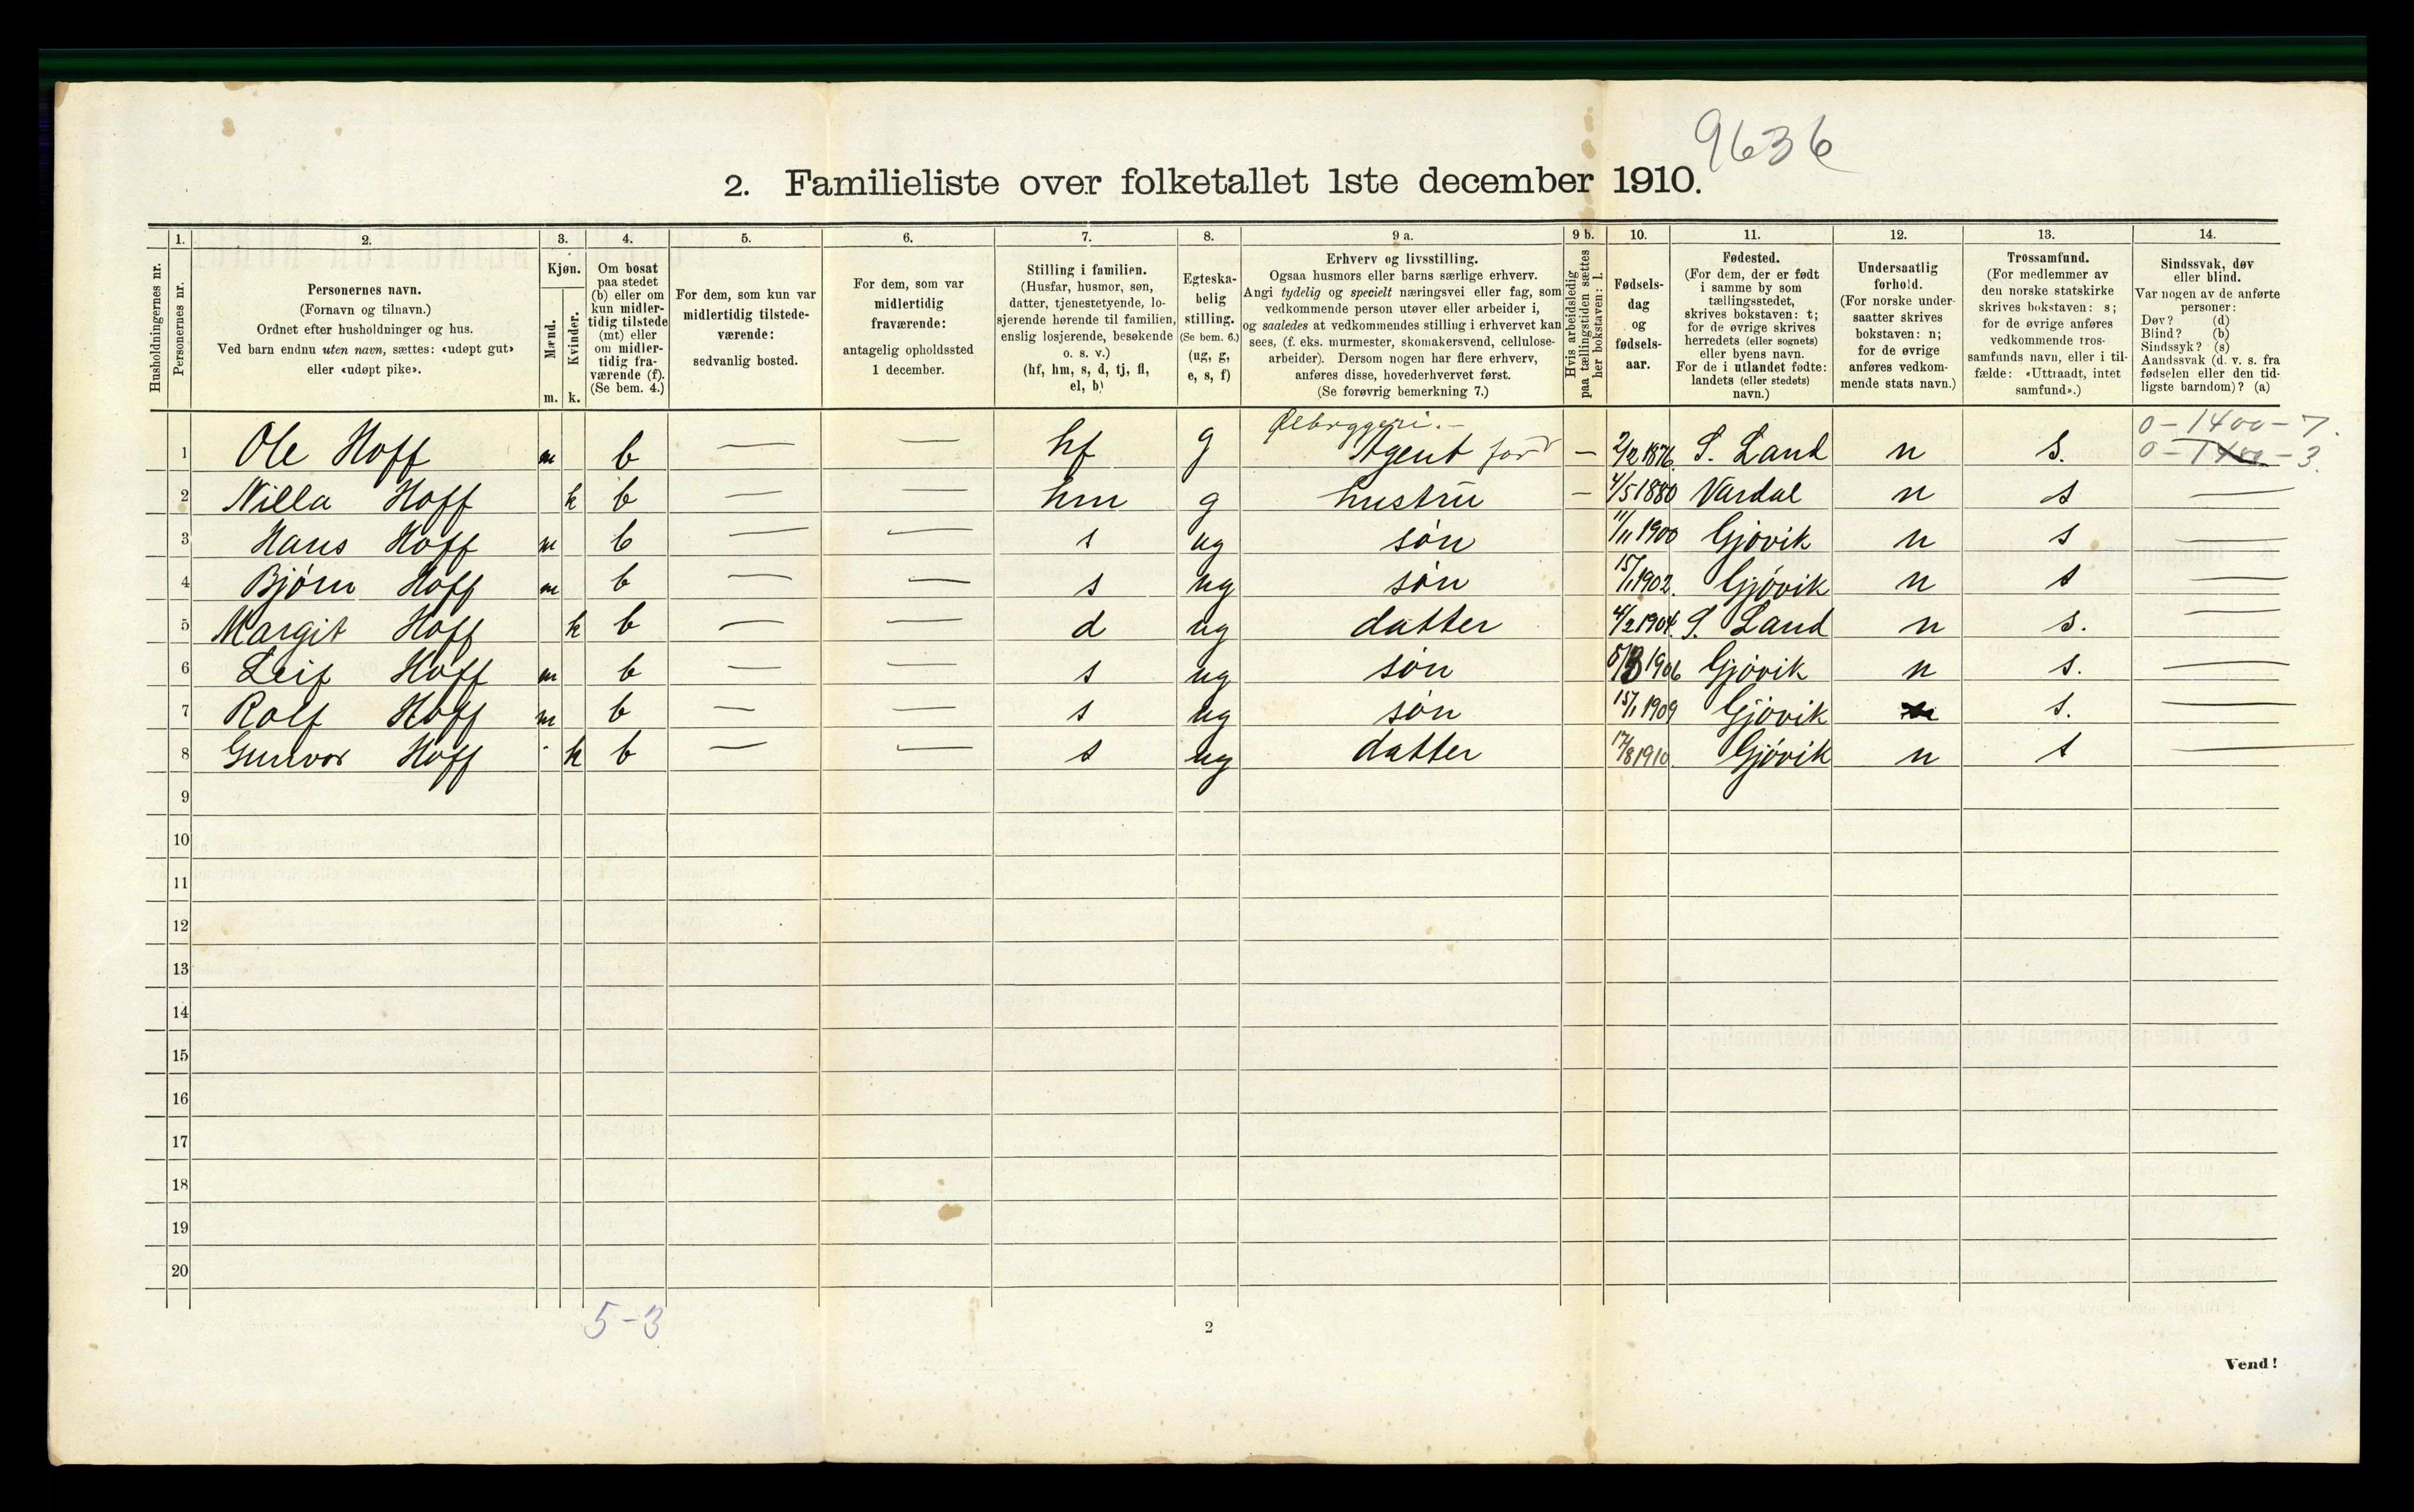 9636
2. Familieliste over folketallet 1ste december 1910.
Husholdningernes nr.
1. Personernes nr.
2. Personernes navn. (Fornavn og tilnavn.) Ordnet efter husholdninger og hus. Ved barn endnu uten navn, sættes: «udøpt gut» eller «udøpt pike».
3. Kjøn. Mænd. m. Kvinder. k.
4. Om bosat paa stedet (b) eller om kun midlertidig tilstede (mt) eller om midlertidig fraværende (f). (Se bem. 4.)
5. For dem, som kun var midlertidig tilstedeværende: sedvanlig bosted.
6. For dem, som var midlertidig fraværende: antagelig opholdssted 1 december.
7. Stilling i familien. (Husfar, husmor, søn, datter, tjenestetyende, losjerende hørende til familien, enslig losjerende, besøkende o. s. v.) (hf, hm, s, d, tj, fl, el, b)
8. Egteskabelig stilling. (Se bem. 6.) (ug, g, e, s, f)
9 a. Erhverv og livsstilling. Ogsaa husmors eller barns særlige erhverv. Angi tydelig og specielt næringsvei eller fag, som vedkommende person utøver eller arbeider i, og saaledes at vedkommendes stilling i erhvervet kan sees, (f. eks. murmester, skomakersvend, cellulosearbeider). Dersom nogen har flere erhverv, anføres disse, hovederhvervet først. (Se forøvrig bemerkning 7.)
9 b. Hvis arbeidsledig paa tællingstiden sættes her bokstaven: l.
10. Fødselsdag og fødselsaar.
11. Fødested. (For dem, der er født i samme by som tællingsstedet, skrives bokstaven: t; for de øvrige skrives herredets (eller sognets) eller byens navn. For de i utlandet fødte: landets (eller stedets) navn.)
12. Undersaatlig forhold. (For norske undersaatter skrives bokstaven: n; for de øvrige anføres vedkommende stats navn.)
13. Trossamfund. (For medlemmer av den norske statskirke skrives bokstaven: s; for de øvrige anføres vedkommende trossamfunds navn, eller i tilfælde: «Uttraadt, intet samfund».)
14. Sindssvak, døv eller blind. Var nogen av de anførte personer: Døv? (d) Blind? (b) Sindssyk? (s) Aandssvak (d. v. s. fra fødselen eller den tidligste barndom)? (a)
Ølbryggeri. 0 - 1400 - 7.
1 Ole Hoff m b — — hf g Agent for — 2/2 1876 S. Land n s. 0 - 1400 - 3.
2 Nilla Hoff k b — — hm g hustru — 4/5 1880 Vardal n s —
3 Hans Hoff m b — — s ug søn 11/11 1900 Gjøvik n s —
4 Bjørn Hoff m b — — s ug søn 15/1 1902. Gjøvik n s —
5 Margit Hoff k b — — d ug datter 4/2 1904. S. Land n s. —
6 Leif Hoff m b — — s ug søn 5/3 1906 Gjøvik n s. —
7 Rolf Hoff m b — — s ug søn 15/1 1909 Gjøvik n s. —
8 Gunvor Hoff k b — — s ug datter 17/8 1910 Gjøvik n s —
9
10
11
12
13
14
15
16
17
18
19
20
5-3
2
Vend!